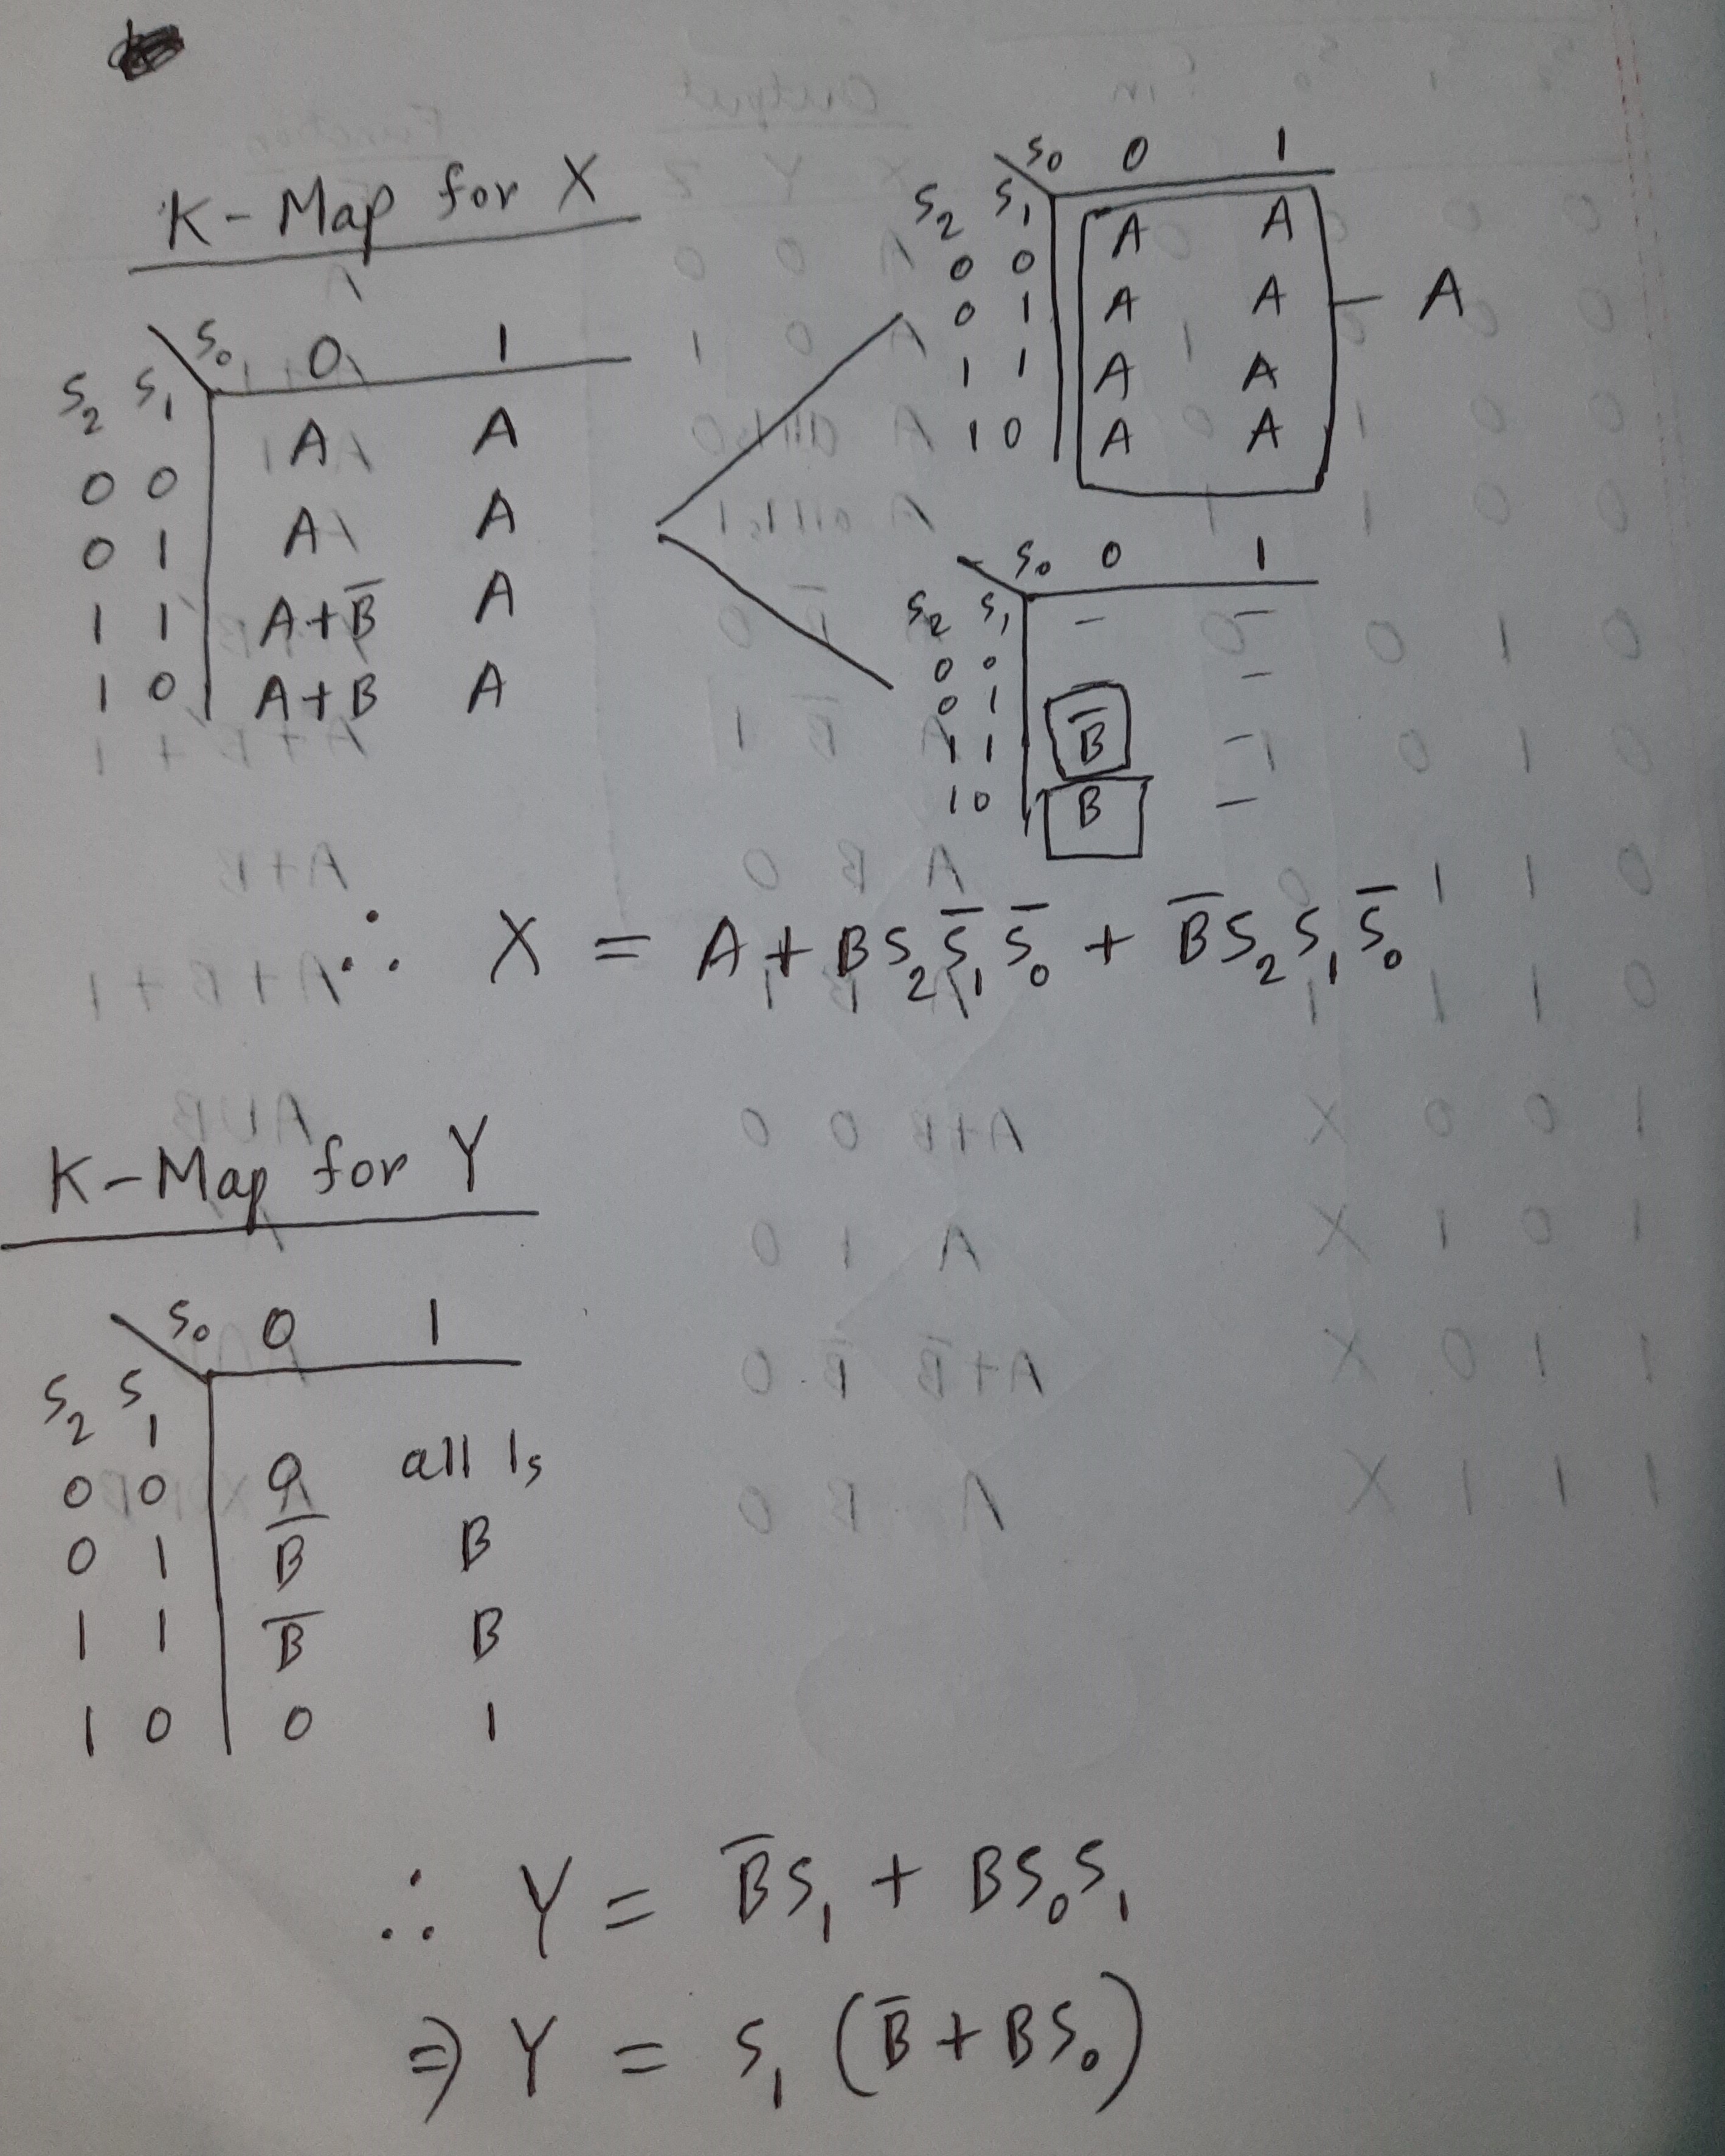 K-Map for X
S0 0 1
S2 S1
0 0 A A
0 1 A A
1 1 A+B̅ A
1 0 A+B A
S0 0 1
S2 S1
0 0 A A
0 1 A A
1 1 A A
1 0 A A
A
S0 0 1
S2 S1
0 0 - -
0 1 - -
1 1 B̅ -
1 0 B -
∴ X = A + BS2S̅1S̅0 + B̅S2S1S̅0
K-Map for Y
S0 0 1
S2 S1
0 0 0 all 1s
0 1 B̅ B
1 1 B̅ B
1 0 0 1
∴ Y = B̅S1 + BS0S1
⇒ Y = S1 (B̅ + BS0)